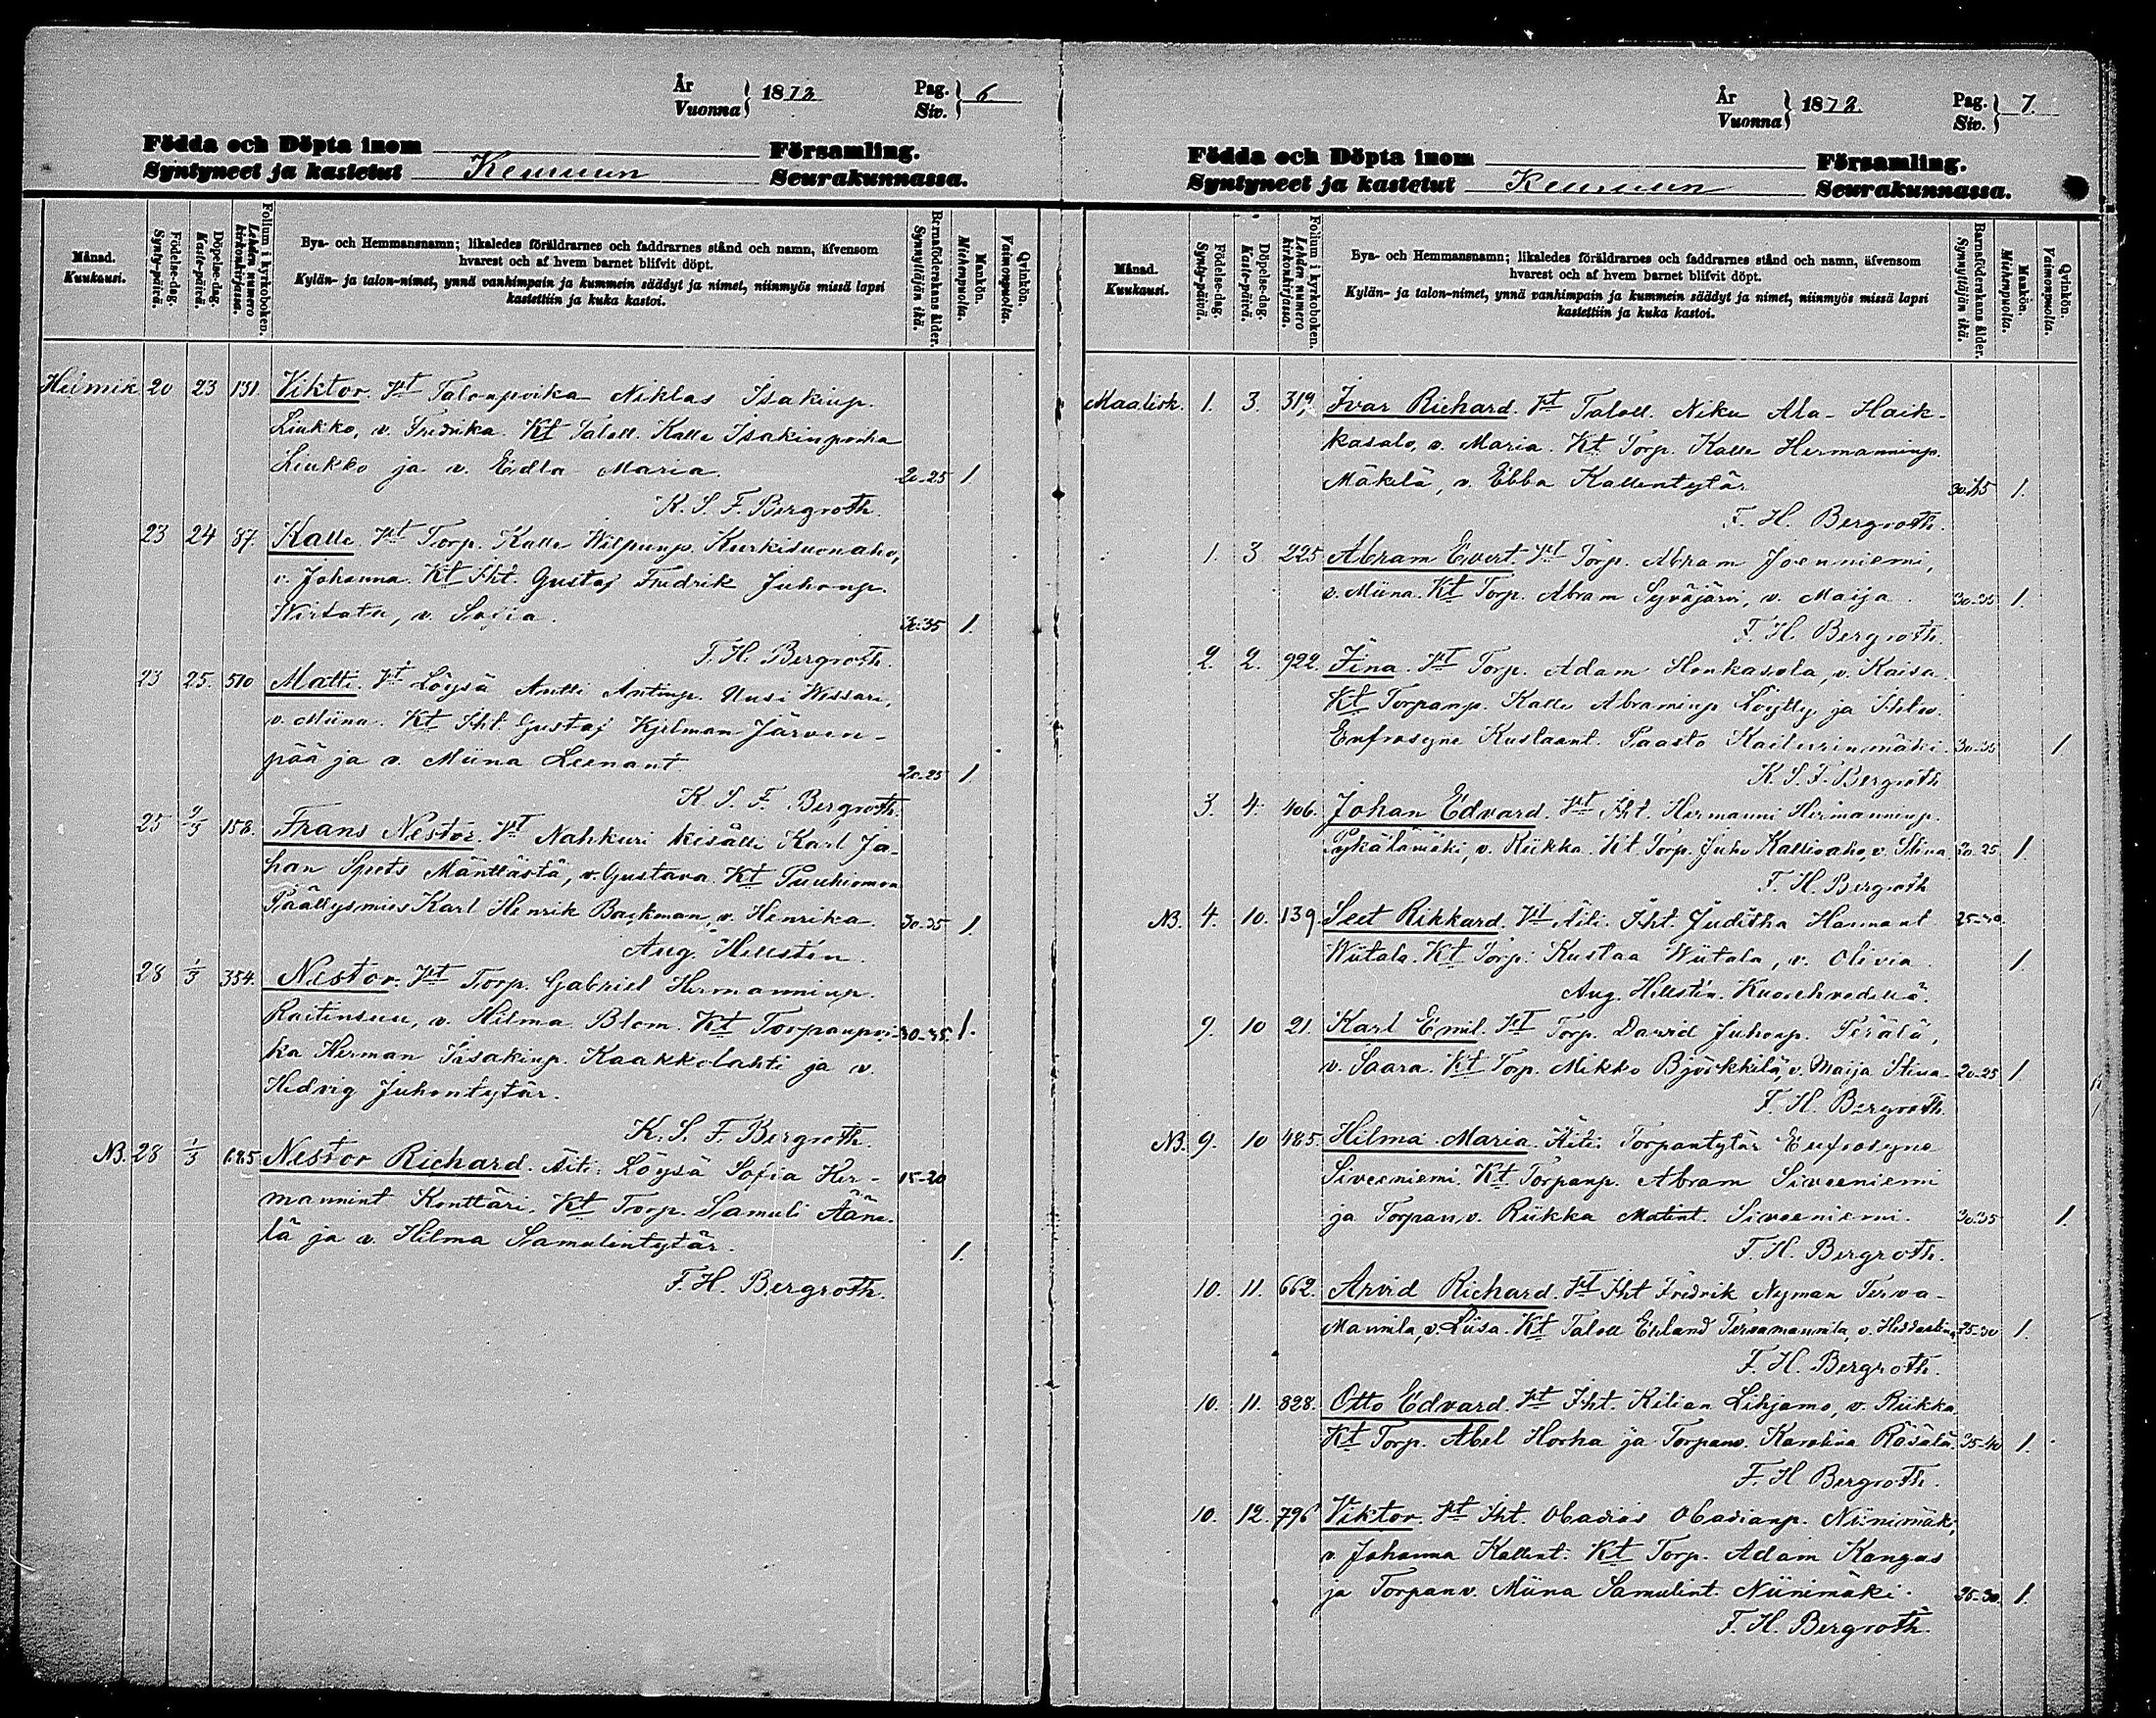 År
Vuonna } 1873
Pag.
Siv. } 6
Födda och Döpta inom Församling.
Syntyneet ja kastetut Keuruun Seurakunnassa.
Månad.
Kuukausi.
Födelse-dag.
Synty-päivä.
Döpelse-dag.
Kaste-päivä.
Folium i kyrkoboken.
Lehden numero kirkonkirjassa.
Bya- och Hemmansnamn; likaledes föräldrarnes och faddrarnes stånd och namn, äfvensom
hvarest och af hvem barnet blifvit döpt.
Kylän- ja talon-nimet, ynnä vanhimpain ja kummein säädyt ja nimet, niinmyös missä lapsi
kastettiin ja kuka kastoi.
Barnaföderskans ålder.
Synnyttäjän ikä.
Mankön.
Miehenpuolta.
Qvinkön.
Vaimonpuolta.
20 23 131. Viktor. Vt Talonpoika Niklas Isakinp.
Liukko, v. Fredrika. Kt Taloll. Kalle Isakinpoika
Liukko ja v. Eedla Maria. 20-25 1.
K. S. F. Bergroth.
23 24 87. Kalle Vt Torp. Kalle Wilpunp. Kurkisuonaho,
v. Johanna. Kt Iht. Gustaf Fredrik Juhonp.
v. Sofia. 30-35 1.
F. H. Bergroth.
23 25. 510 Matti. Vt Löysä Antti Antinp. Uusi Wissari,
v. Miina. Kt Iht. Gustaf Kjelman Järven-
pää ja v. Miina Leenant. 20-25 1.
K. S. F. Bergroth.
25 9/3 158. Frans Nestor. Vt Nahkuri kisälli Karl Jo-
han Spets Mänttästä, v. Gustava. Kt Puuhiomon
Päällysmies Karl Henrik Backman, v. Henrika. 30-35 1.
Aug. Hellstén.
28 1/3 354. Nestor. Vt Torp. Gabriel Hermanninp.
v. Hilma Blom. Kt Torpanpoi- 30-35. 1.
ka Herman Iisakinp. Kaakkolahti ja v.
Hedvig Juhontytär.
K. S. F. Bergroth.
NB. 28 1/3 685 Nestor Richard. Äiti: Löysä Sofia Her- 15-20
mannint Konttäri. Kt Torp. Samuli Ääne-
lä ja v. Hilma Samulintytär. 1.
F. H. Bergroth.
År
Vuonna } 1873.
Pag.
Siv. } 7.
Födda och Döpta inom Församling.
Syntyneet ja kastetut Keuruun Seurakunnassa.
Månad.
Kuukausi.
Födelse-dag.
Synty-päivä.
Döpelse-dag.
Kaste-päivä.
Folium i kyrkoboken.
Lehden numero kirkonkirjassa.
Bya- och Hemmansnamn; likaledes föräldrarnes och faddrarnes stånd och namn, äfvensom
hvarest och af hvem barnet blifvit döpt.
Kylän- ja talon-nimet, ynnä vanhimpain ja kummein säädyt ja nimet, niinmyös missä lapsi
kastettiin ja kuka kastoi.
Barnaföderskans ålder.
Synnyttäjän ikä.
Mankön.
Miehenpuolta.
Qvinkön.
Vaimonpuolta.
Maalisk. 1. 3. 319. Ivar Richard. Vt Taloll. Niku Ala-Haik-
kasalo, v. Maria. Kt Torp. Kalle Hermanninp.
Mäkelä, v. Ebba Kallentytär. 1.
F. H. Bergroth.
1. 3. 225 Abram Evert. Vt Torp. Abram Joenniemi,
v. Miina. Kt Torp. Abram Syväjärvi, v. Maija. 30-35 1.
F. H. Bergroth.
2. 2. 922. Fina. Vt Torp. Adam Honkasola, v. Kaisa.
Kt Torpanp. Kalle Abraminp Löytty, ja Ihtv.
Eufrosyne Kustaant. 30-35 1.
K. S. F. Bergroth
3. 4. 406. Johan Edvard. Vt Iht. Hermanni Hermanninp.
Pykälämäki, v. Riikka. Kt. Torp. Juho Kallioaho, v. Stina 20-25 1.
F. H. Bergroth
NB. 4. 10. 139. Seet Rikkard. Vt Äiti. Iht. Juditha Hannant 25-30.
Wiitala. Kt Torp. Kustaa Wiitala, v. Olivia. 1.
Aug. Hellstén. Kuorehvedellä.
9. 10 21. Karl Emil. Vt Torp. David Juhonp. Perälä,
v. Saara. Kt Torp. Mikko Björkkilä, v. Maija Stina. 20-25 1.
F. H. Bergroth.
NB. 9. 10 485. Hilma Maria. Äiti: Torpantytär Eufrosyne
Siveeniemi. Kt Torpanp. Abram Siveeniemi
ja Torpanv. Riikka Matint. Siveeniemi. 30-35 1.
F. H. Bergroth.
10. 11. 662. Arvid Richard. Vt Iht Fredrik Nyman Terva-
Mannila, v. Liisa. Kt Taloll Erland Tervamannila, v. 25-30 1.
F. H. Bergroth.
10. 11. 828. Otto Edvard. Vt Iht. Kilian Lihjamo, v. Riikka.
Kt Torp. Abel Horha ja Torpanv. Karolina Räsälä. 35-40 1.
F. H Bergroth.
10. 12. 796 Viktor. Vt Iht. Obadias Obadianp. Niinimäki,
v. Johanna Kallent: Kt Torp. Adam Kangas
ja Torpanv. Miina Samulint. Niinimäki. 25-30. 1.
F. H. Bergroth.